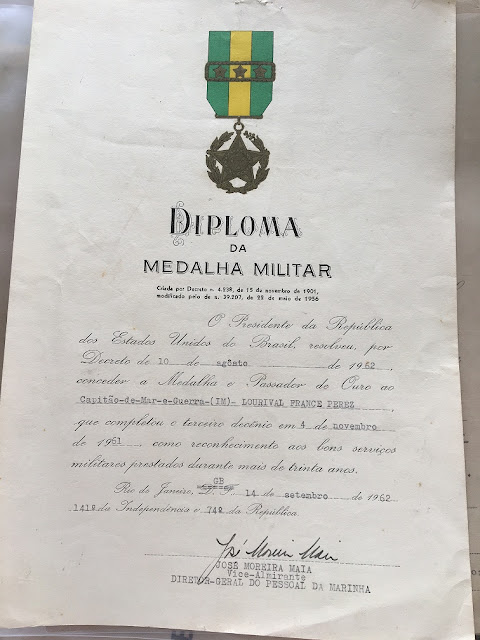 DIPLOMA
DA
MEDALHA MILITAR
Criada por Decreto n. 4.238, de 15 de novembro de 1901,
modificado pelo de n. 39.207, de 22 de maio de 1956
O Presidente da República
dos Estados Unidos do Brasil, resolveu, por
Decreto de 10 de agôsto de 1962,
conceder a Medalha e Passador de Ouro ao
Capitão-de-Mar-e-Guerra-(IM)- LOURIVAL FRANCE PEREZ,
que completou o terceiro decênio em 4 de novembro
de 1961, como reconhecimento aos bons serviços
militares prestados durante mais de trinta anos.
GB
Rio de Janeiro, D. F. 14 de setembro de 1962
141º da Independência e 74º da República
José Moreira Maia
JOSÉ MOREIRA MAIA
Vice-Almirante
DIRETOR-GERAL DO PESSOAL DA MARINHA